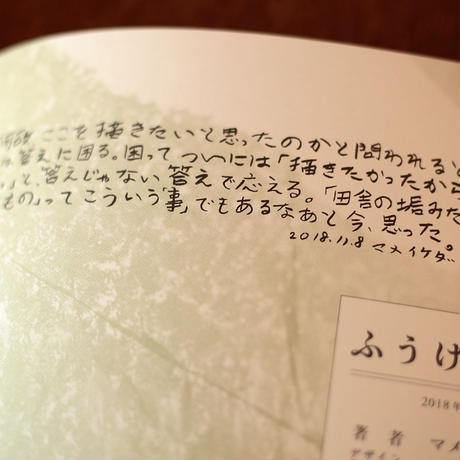 何故ここを描きたいと思ったのかと問われると
答えに困る。困って ついには「描きたかったから
」と、答えじゃない答えで応える。「田舎の堀みた
もの」って こういう事」でもあるなあと 今、思った。
2018.11.8 マメイケダ
ふうけ
2018年
著者 マメ
デザイン